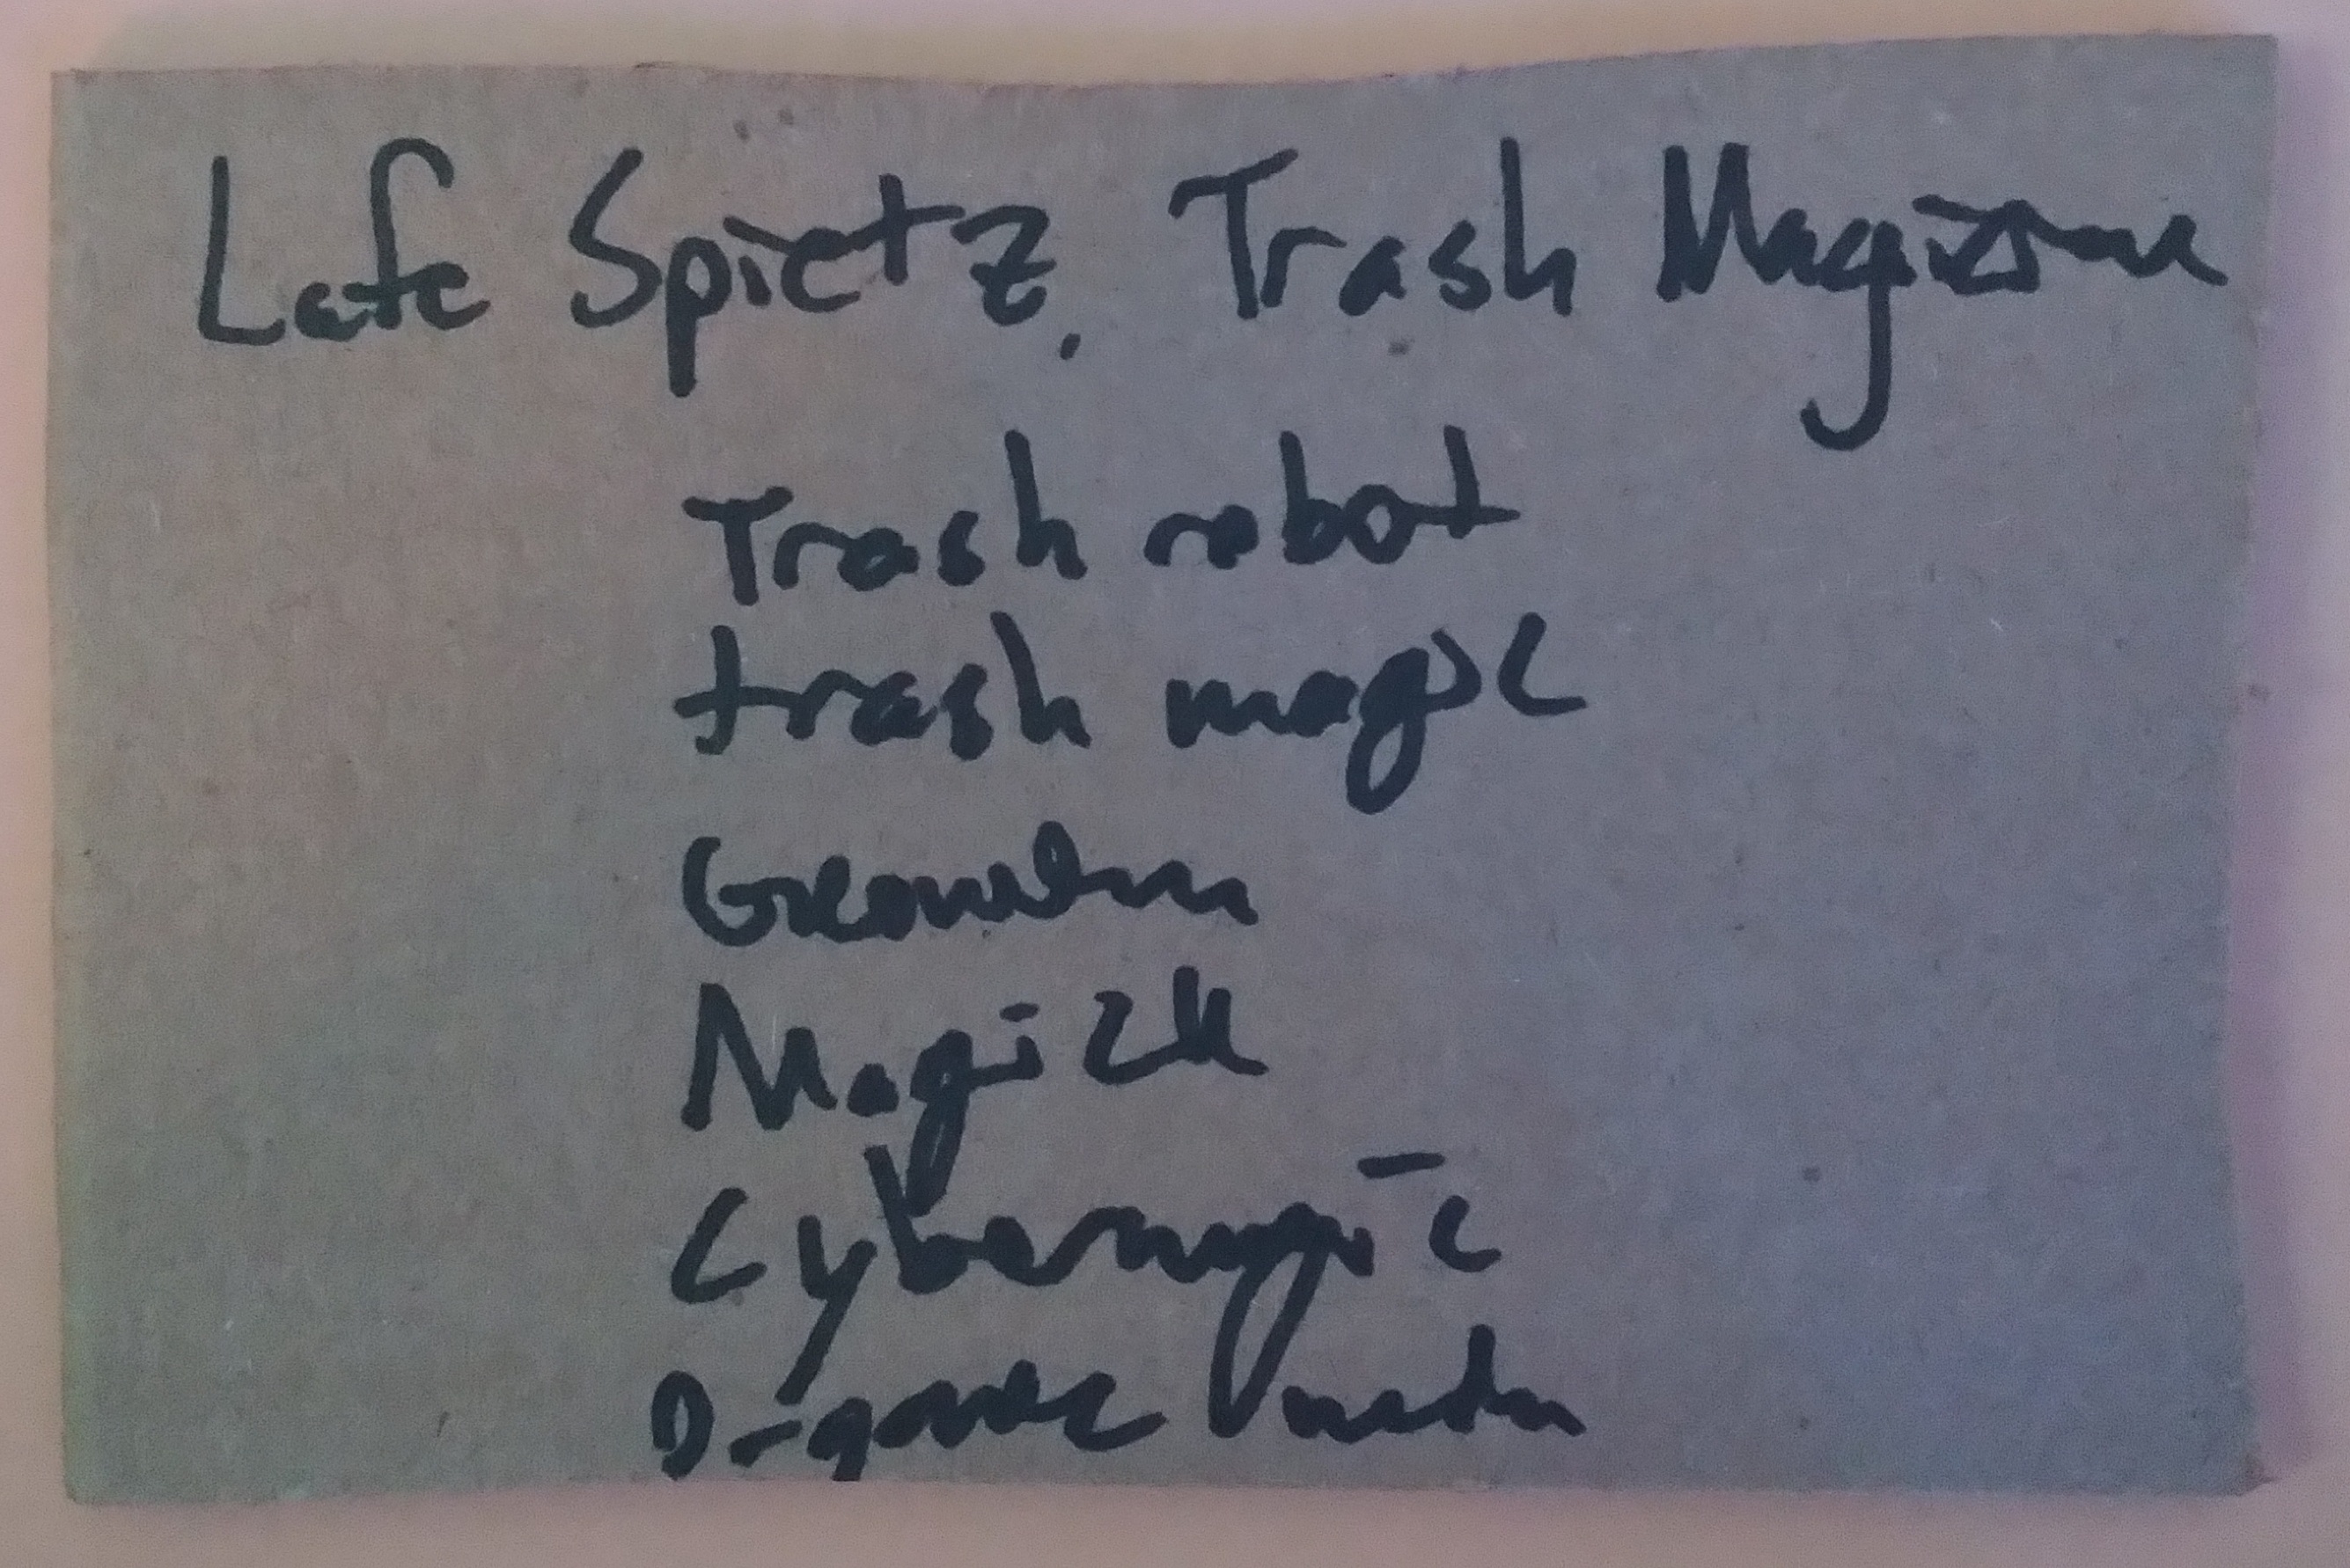 Lafe Spietz, Trash Magician
Trash robot
trash magic
Geometron
Magick
Cybermagic
Organic media